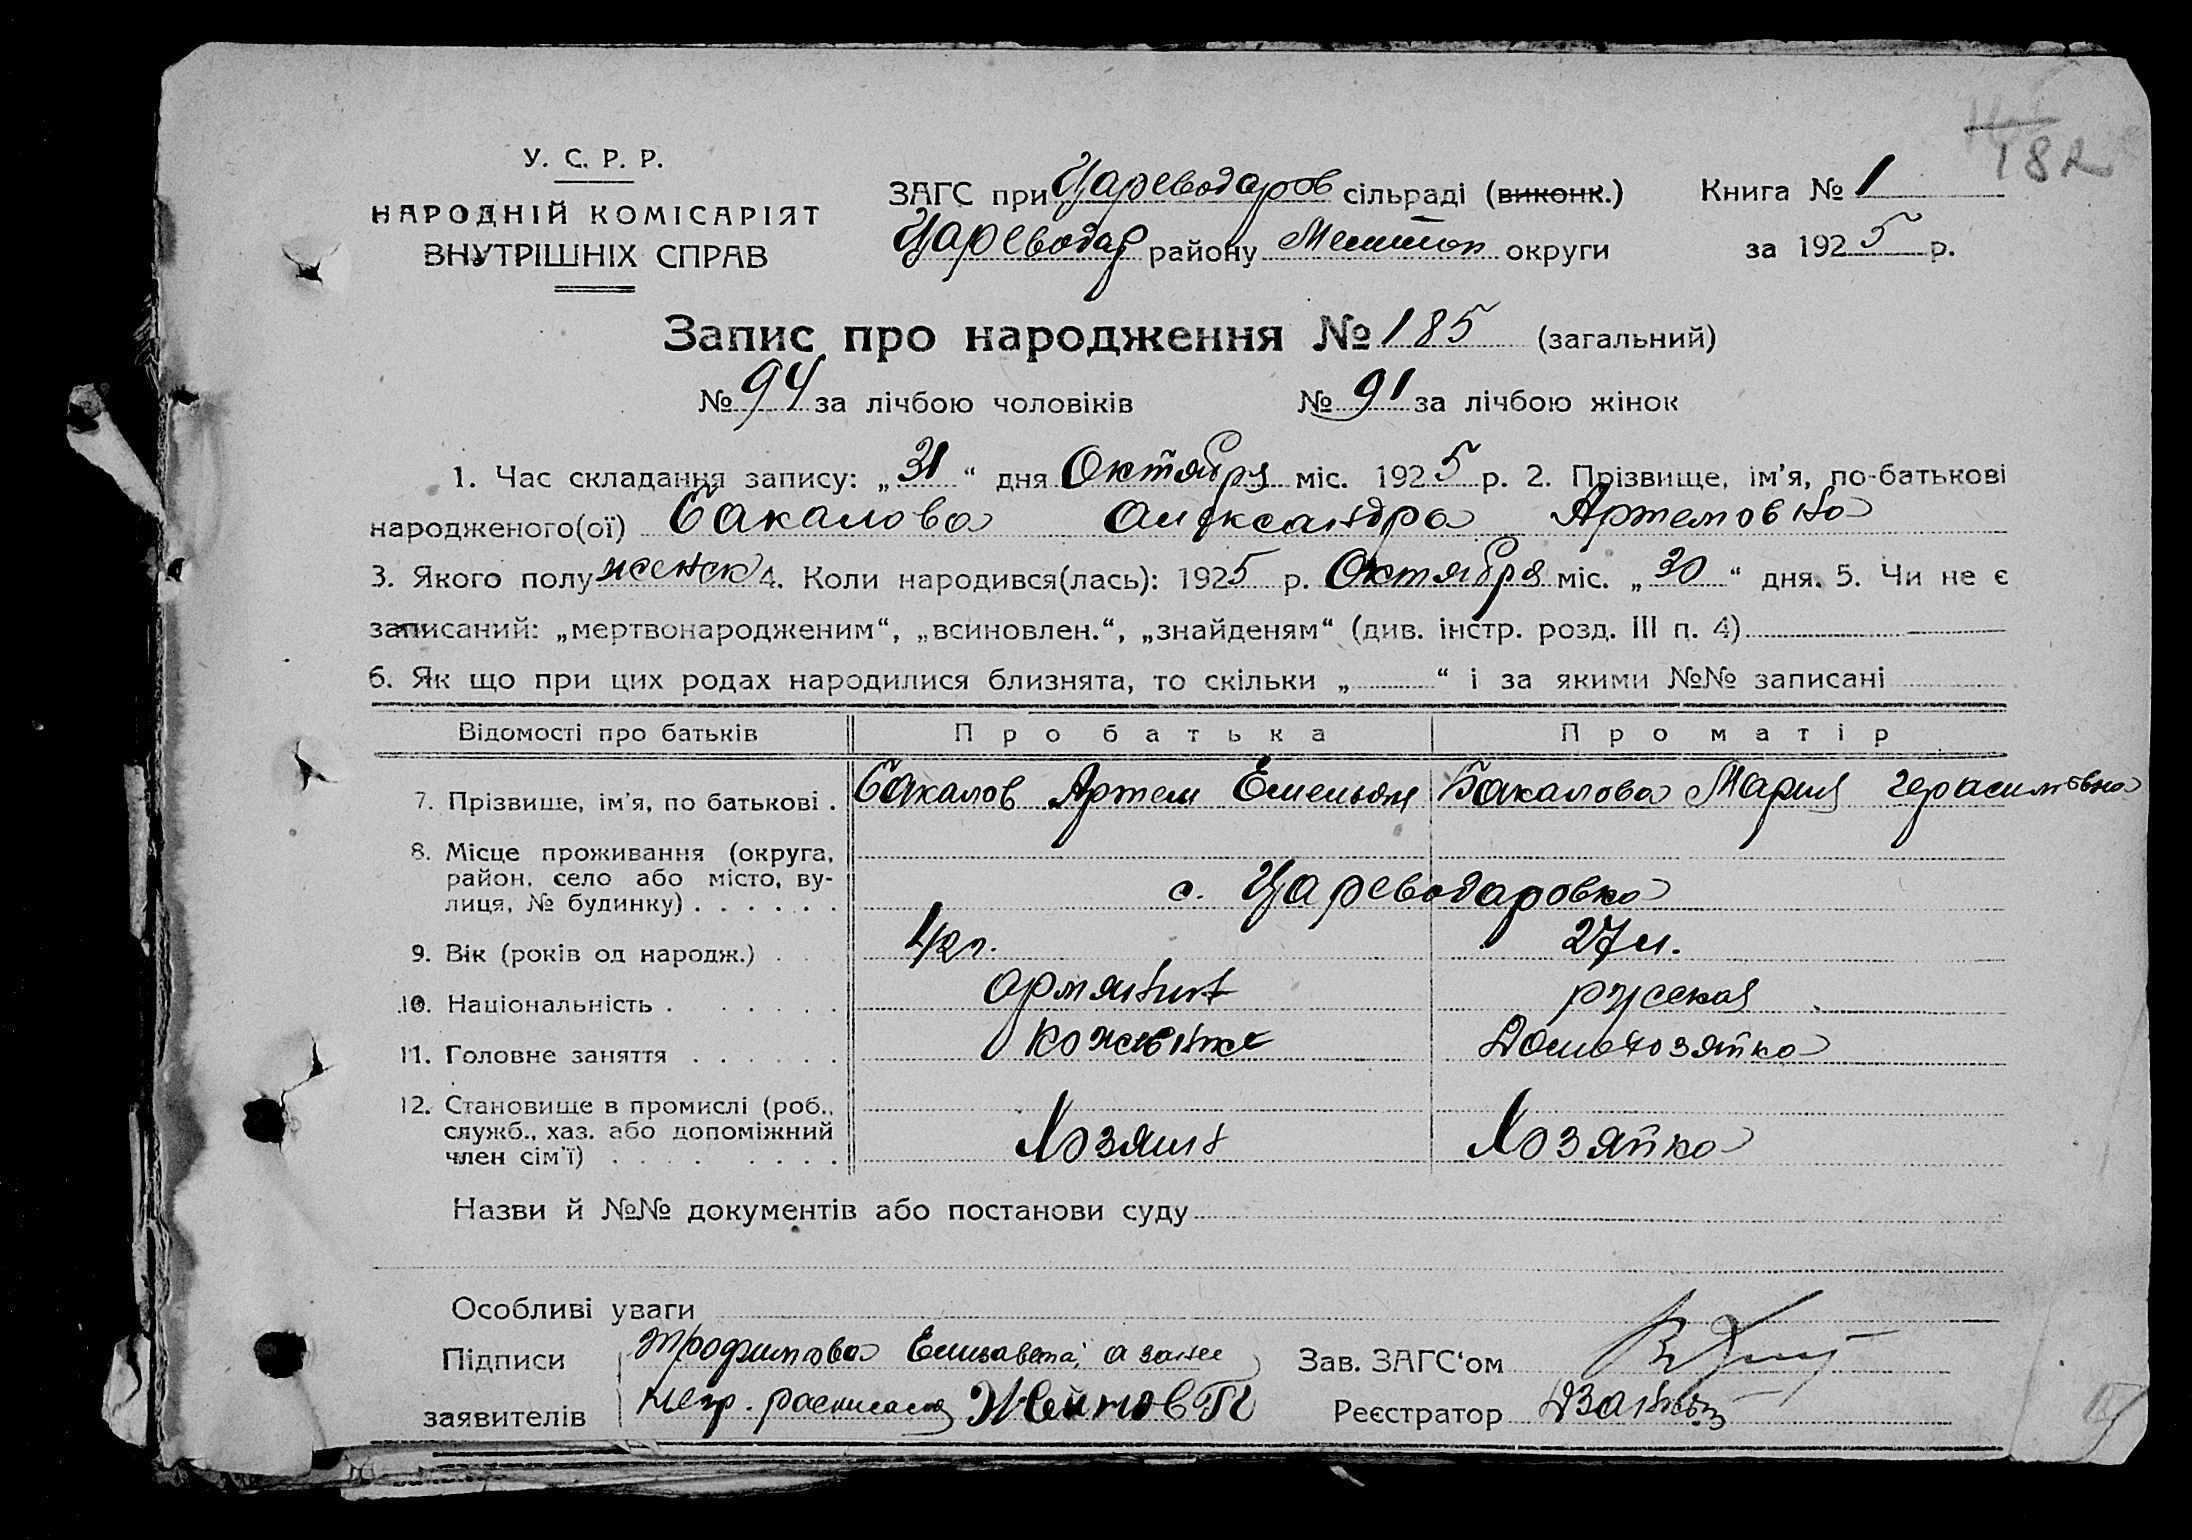 182
У. С. Р. Р.
НАРОДНІЙ КОМІСАРІЯТ
ВНУТРІШНІХ СПРАВ
ЗАГС при Цареводаров сільраді (виконк.) Книга № 1
Цареводар району Мелитоп округи за 1925 р.
Запис про народження № 185 (загальний)
№ 94 за лічбою чоловіків № 91 за лічбою жінок
1. Час складання запису: „31“ дня Октября міс. 1925 р. 2. Прізвище, ім’я, по-батькові
народженого(ої) Бакалова Александра Артемовна
3. Якого полу женск 4. Коли народився(лась): 1925 р. Октября міс. „30“ дня. 5. Чи не є
записаний: „мертвонародженим“, „всиновлен.“, „знайденям“ (див. інстр. розд. III п. 4)
6. Як що при цих родах народилися близнята, то скільки „ “ і за якими №№ записані
Відомості про батьків Про батька Про матір
7. Прізвище, ім’я, по батькові . Бакалов Артем Емельян Бакалова Мария Герасимовна
8. Місце проживання (округа,
район, село або місто, ву-
лиця, № будинку) . . . . . . с. Цареводаровка
9. Вік (років од народж.) . . . 42 л. 27 л.
10. Національність . . . . . . армянин русская
11. Головне заняття . . . . . . Домохозяйка
12. Становище в промислі (роб.,
служб., хаз. або допоміжний
член сім’ї) . . . . . . . . Хозяин Хозяйка
Назви й №№ документів або постанови суду
Особливі уваги
Підписи Трофимова Елизавета, а за нее Зав. ЗАГС‘ом
заявителів негр. расписался Реєстратор